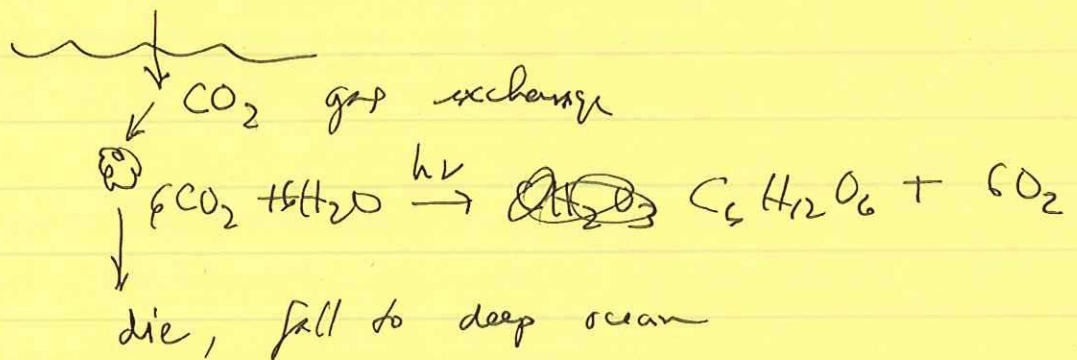 CO₂ gas exchange
6CO₂ + 6H₂O hν → C₆H₁₂O₆ + 6O₂
die, fall to deep ocean